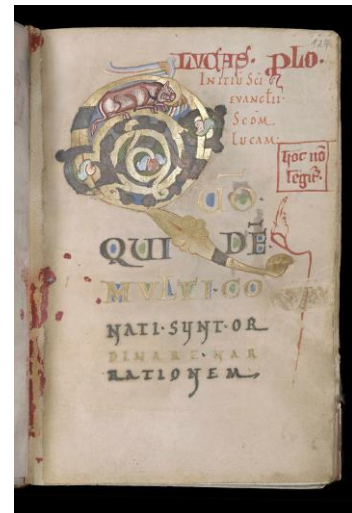 LUCAS. PLO.
INITIU SCI
EVANGLII.
SCDM
LUCAM.
hoc nō
legit̄.
Q UŌ.
QUI DĒ
MVLTI·CO
NATI·SVNT·OR
DINARE·NAR
RATIONEM